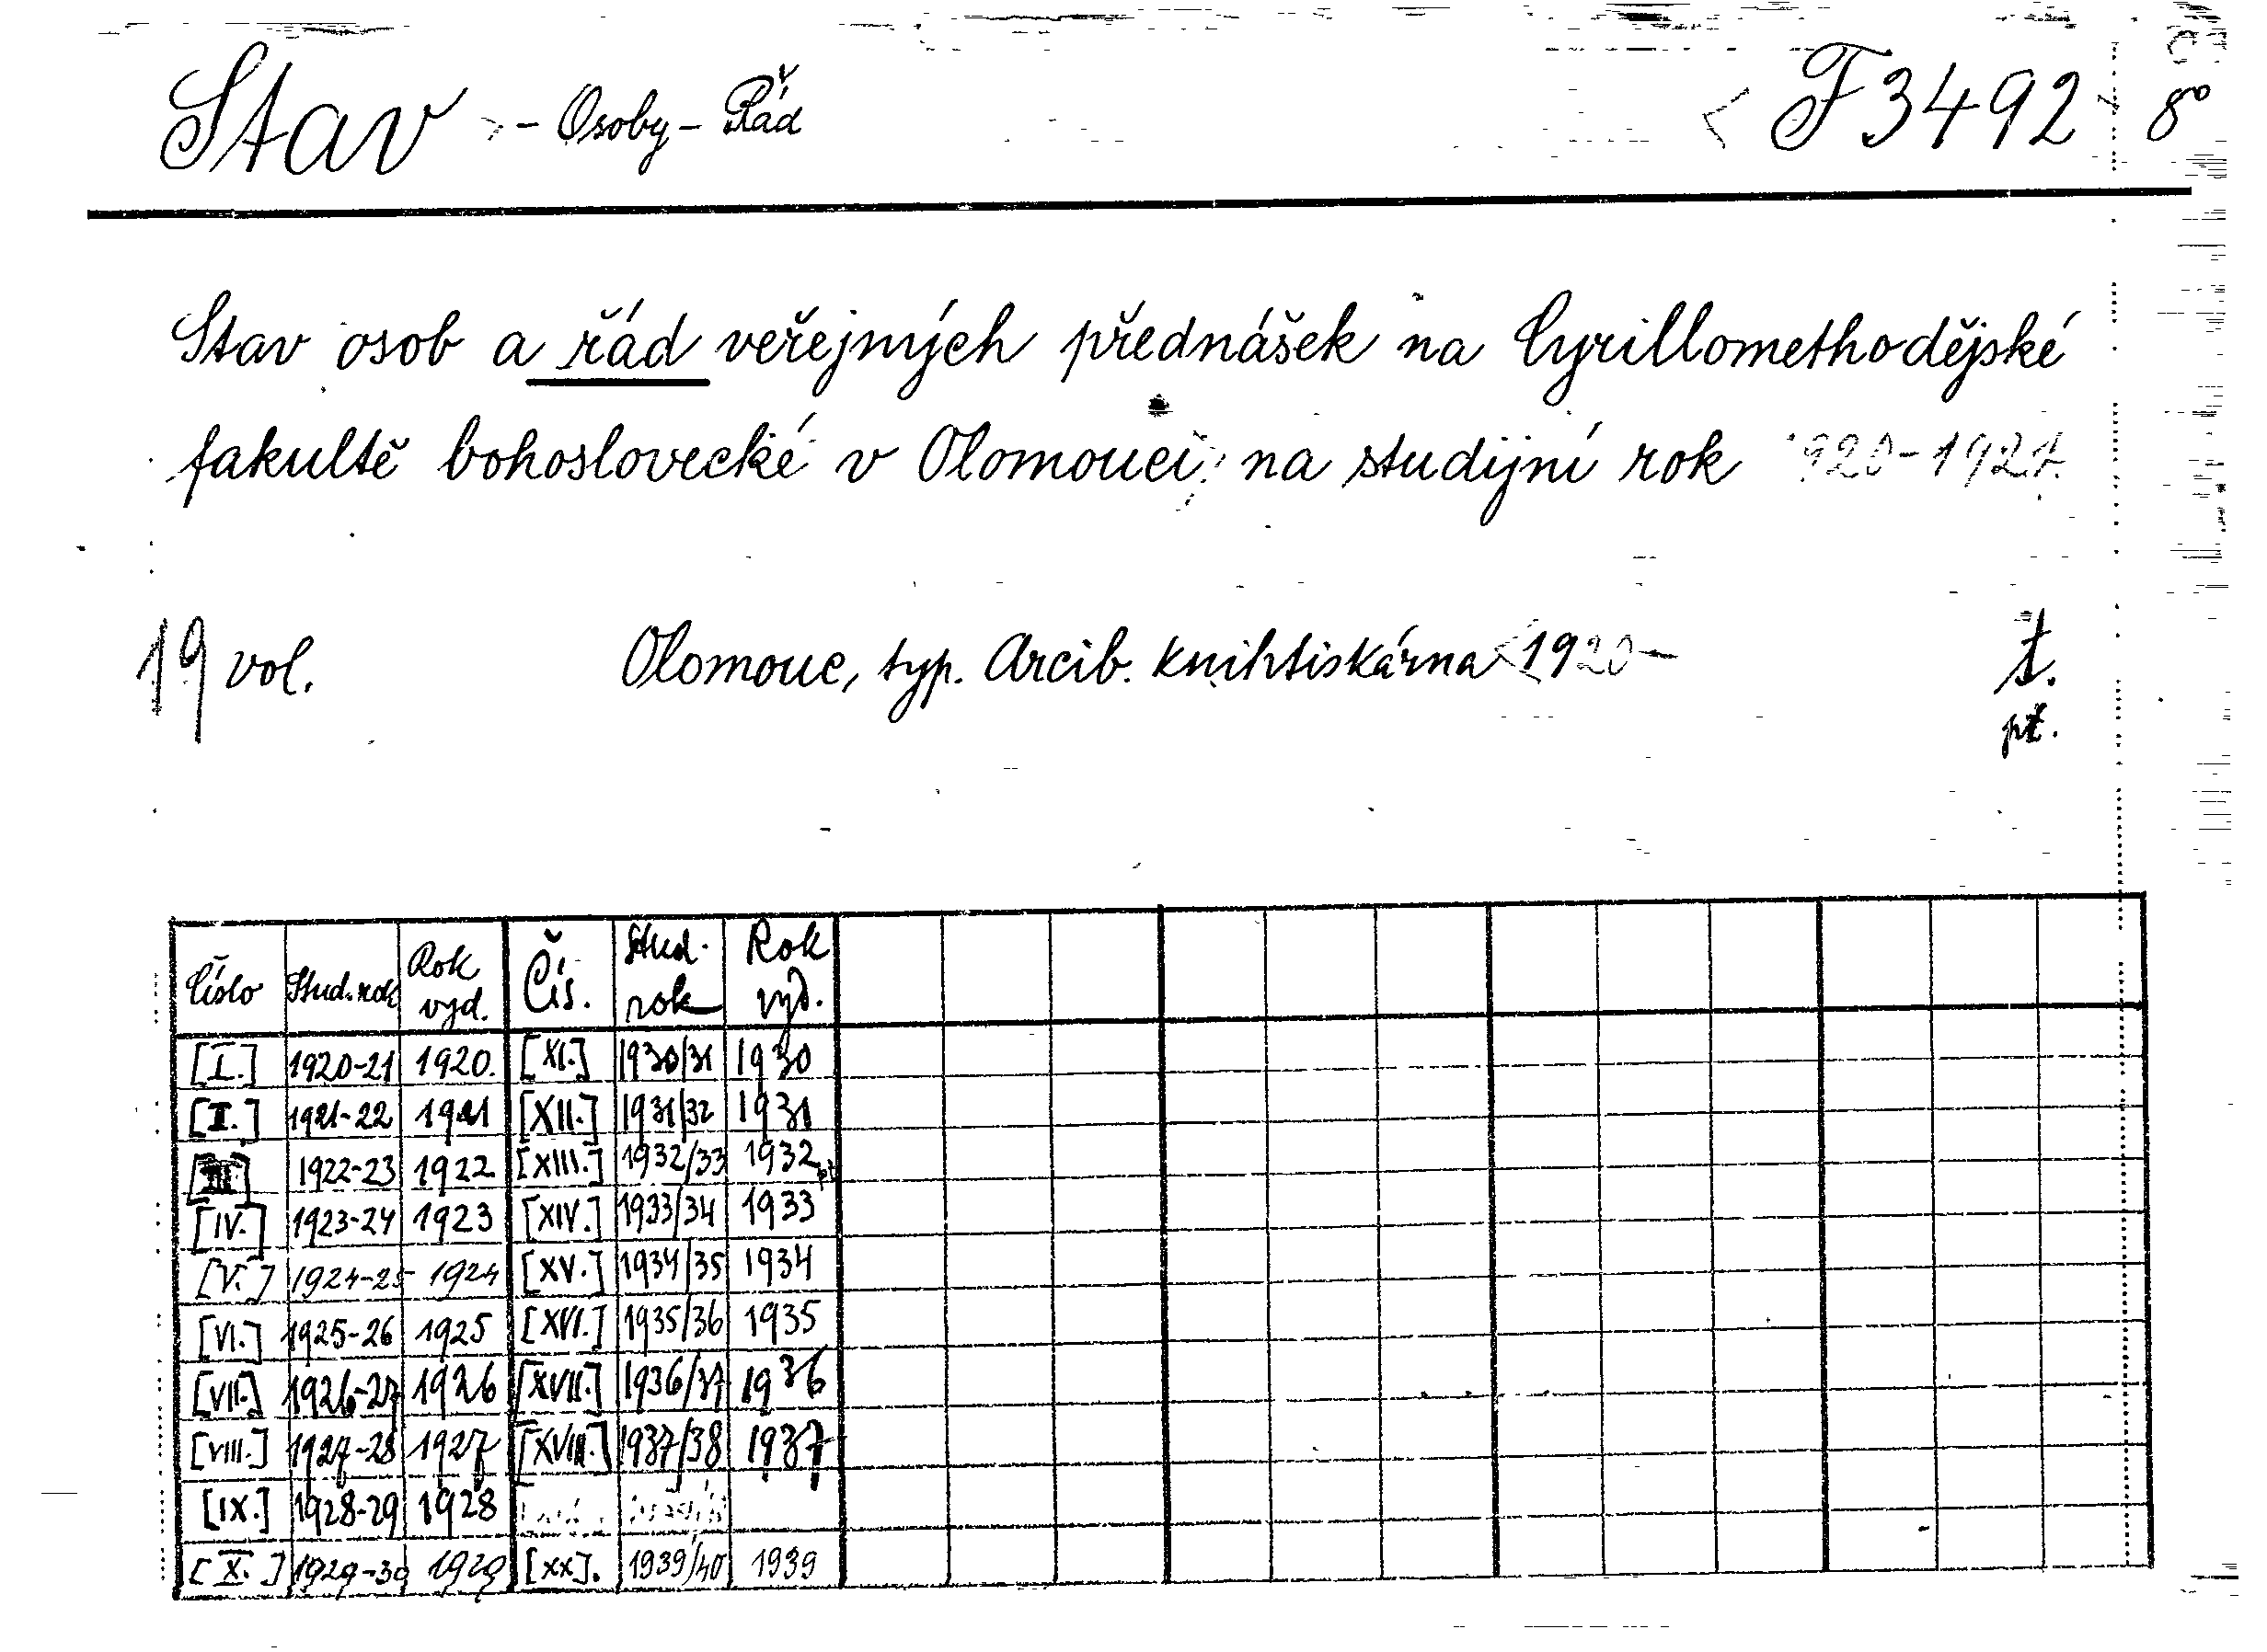 Stav - Osoby - Řád F 3492 8°
Stav osob a řád veřejných přednášek na Cyrillomethodějské
fakultě bohoslovecké v Olomouci na studijní rok 1920-1921.
19 vol. Olomouc, typ. Arcib. knihtiskárna 1920-
pt.
Číslo Stud. rok Rok vyd. Čís. Stud. rok Rok vyd.
[I.] 1920-21 1920. [XI.] 1930/31 1930
[II.] 1921-22 1921 [XII.] 1931/32 1931
[III.] 1922-23 1922 [XIII.] 1932/33 1932
[IV.] 1923-24 1923 [XIV.] 1933/34 1933
[V.] 1924-25 1924 [XV.] 1934/35 1934
[VI.] 1925-26 1925 [XVI.] 1935/36 1935
[VII.] 1926-27 1926 [XVII.] 1936/37 1936
[VIII.] 1927-28 1927 [XVIII.] 1937/38 1937
[IX.] 1928-29 1928
[X.] 1929-30 1929 [XX]. 1939/40 1939